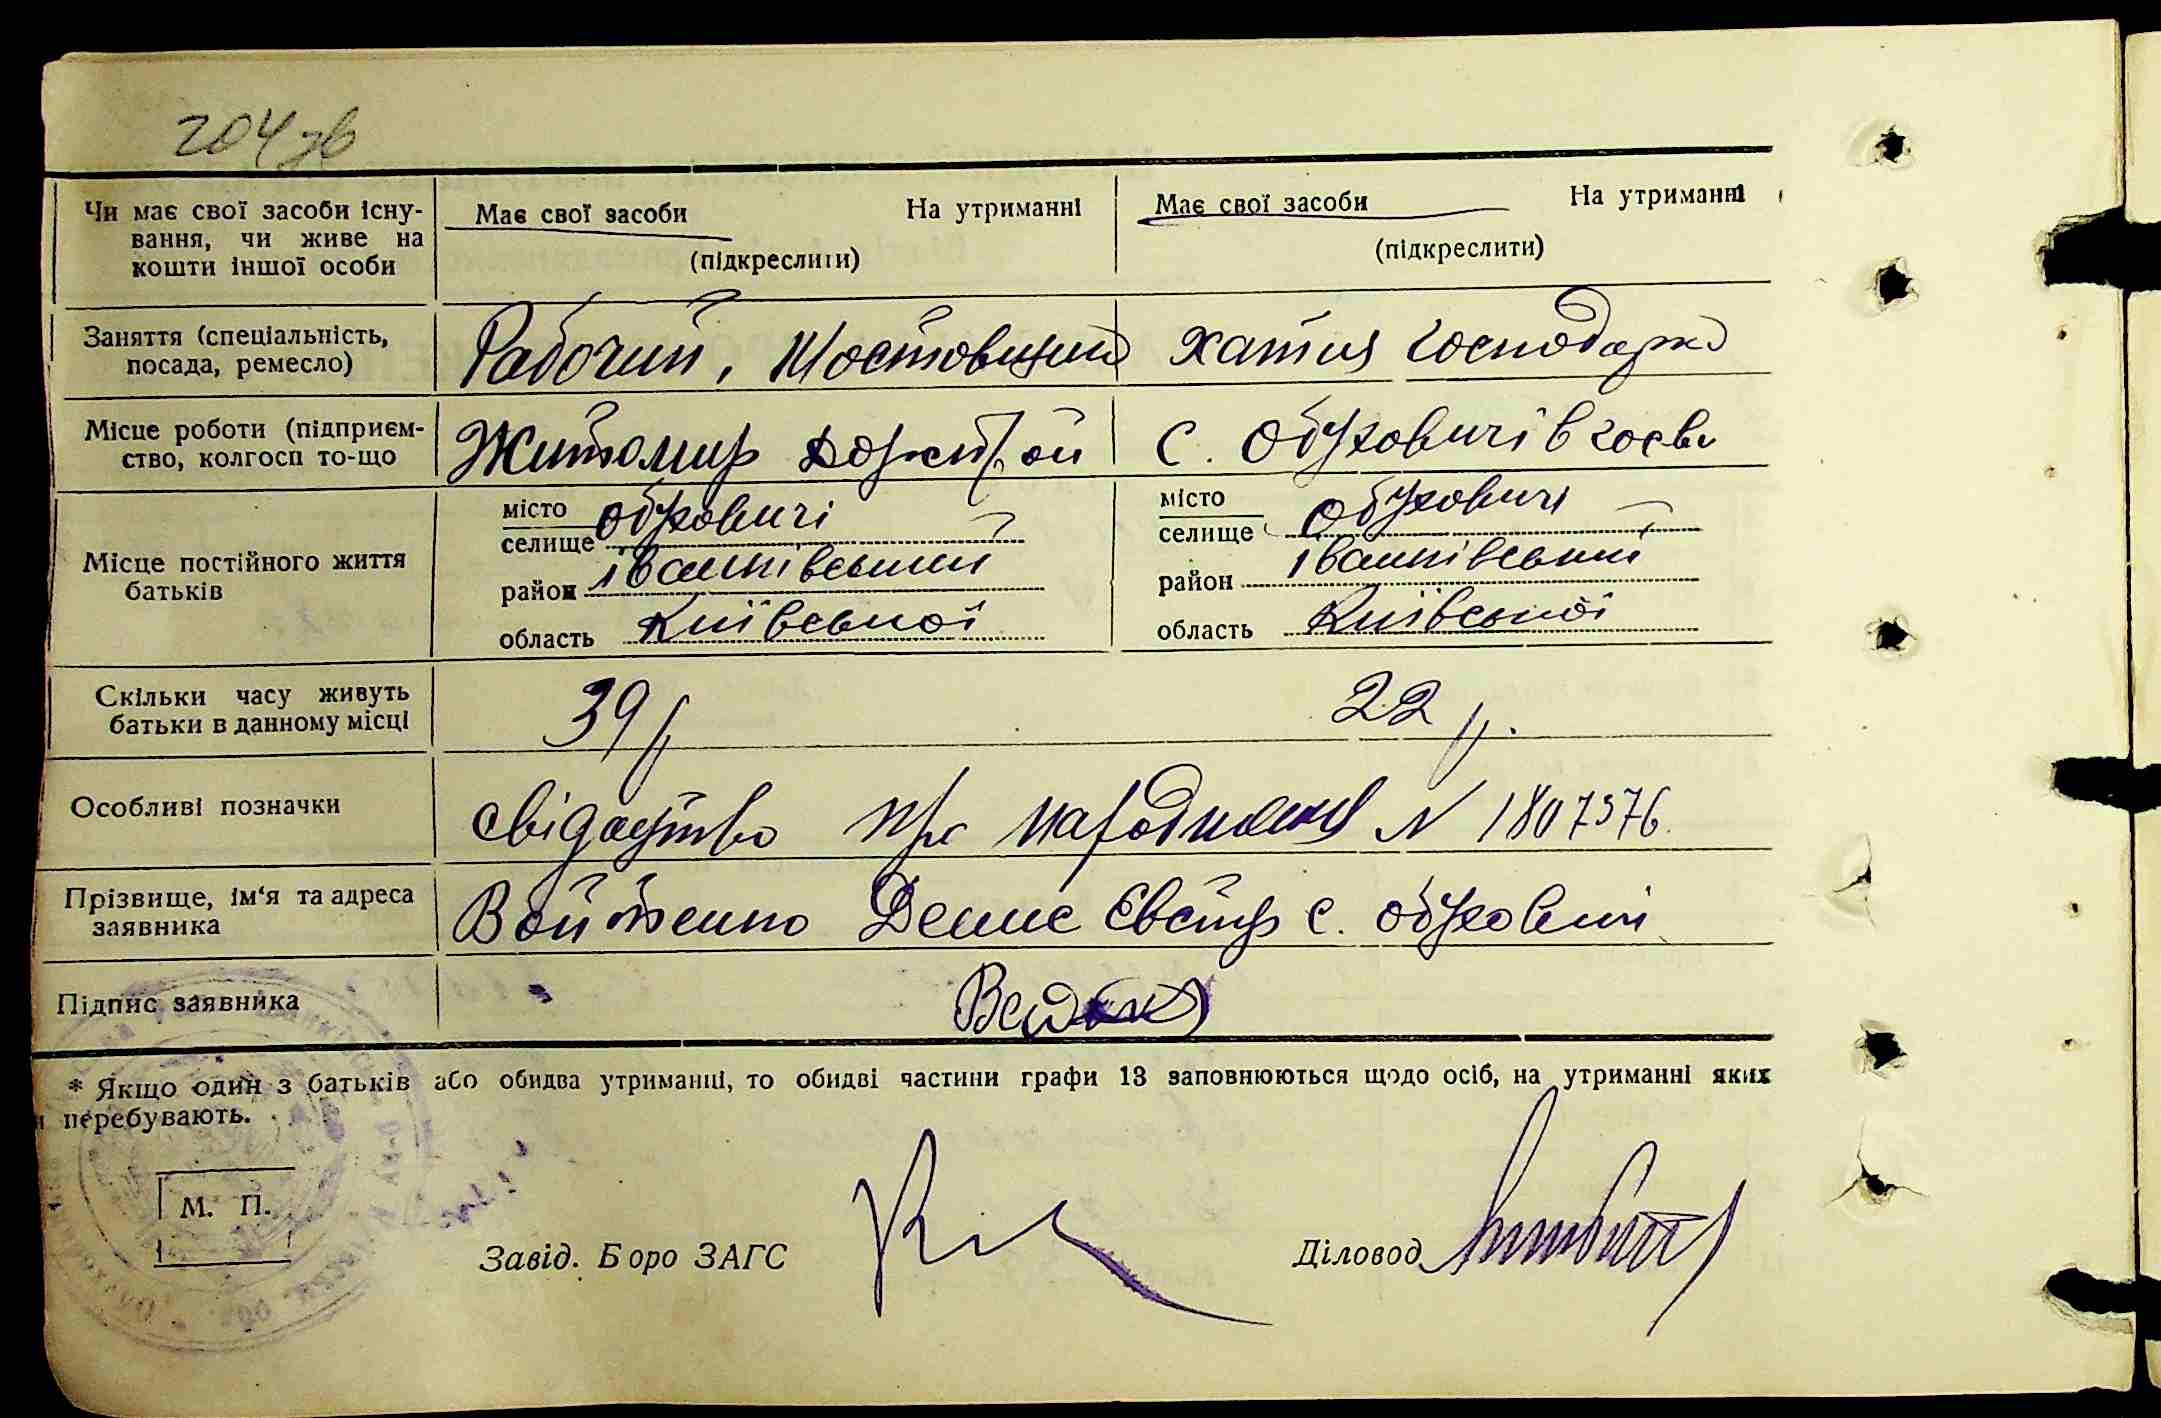 204 зв
Чи має свої засоби існу-
вання, чи живе на
кошти іншої особи
Має свої засоби На утриманні
(підкреслити)
Має свої засоби На утриманні
(підкреслити)
Заняття (спеціальність,
посада, ремесло)
Рабочий, Мостовщик
хатня господарка
Місце роботи (підприєм-
ство, колгосп то-що
Житомир Дорстрой
с. Обуховичі в госві
Місце постійного життя
батьків
місто
селище Обуховичі
район Іванківський
область Київської
місто
селище Обуховичі
район Іванківський
область Київської
Скільки часу живуть
батьки в данному місці
39 р
22 р.
Особливі позначки
свідоцтво про народження N 1807576
Прізвище, ім'я та адреса
заявника
Войтенко Денис Євстр с. Обуховичі
Підпис заявника
* Якщо один з батьків або обидва утриманці, то обидві частини графи 13 заповнюються щодо осіб, на утриманні яких
перебувають.
М. П.
Завід. Бюро ЗАГС
Діловод